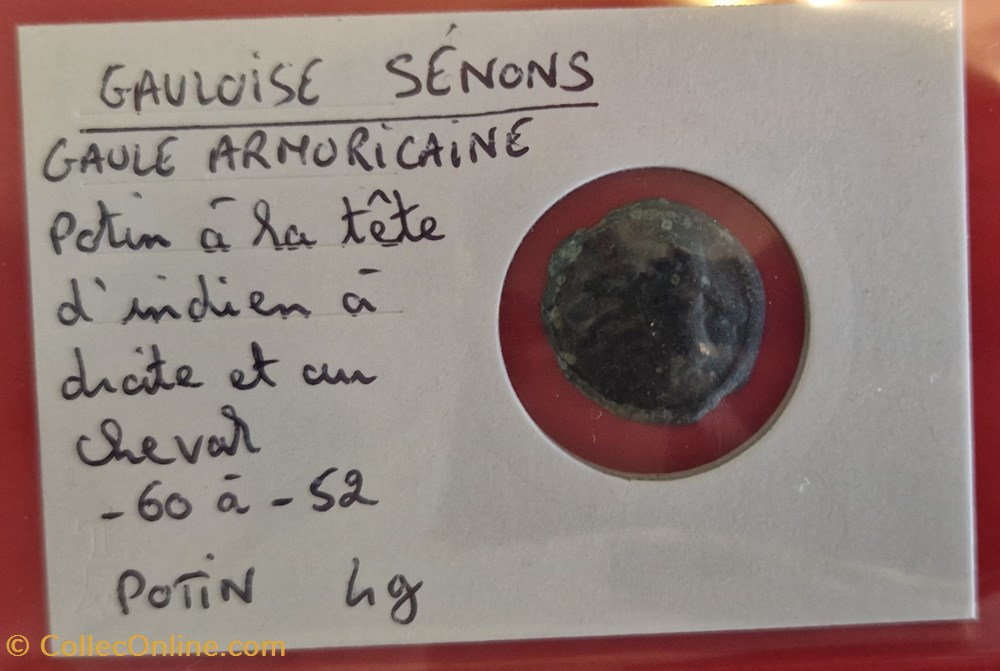 GAULOISE SÉNONS
GAULE ARMORICAINE
Potin à la tête
d'indien à
droite et au
cheval
-60 à -52
POTIN 4g
© CollecOnline.com